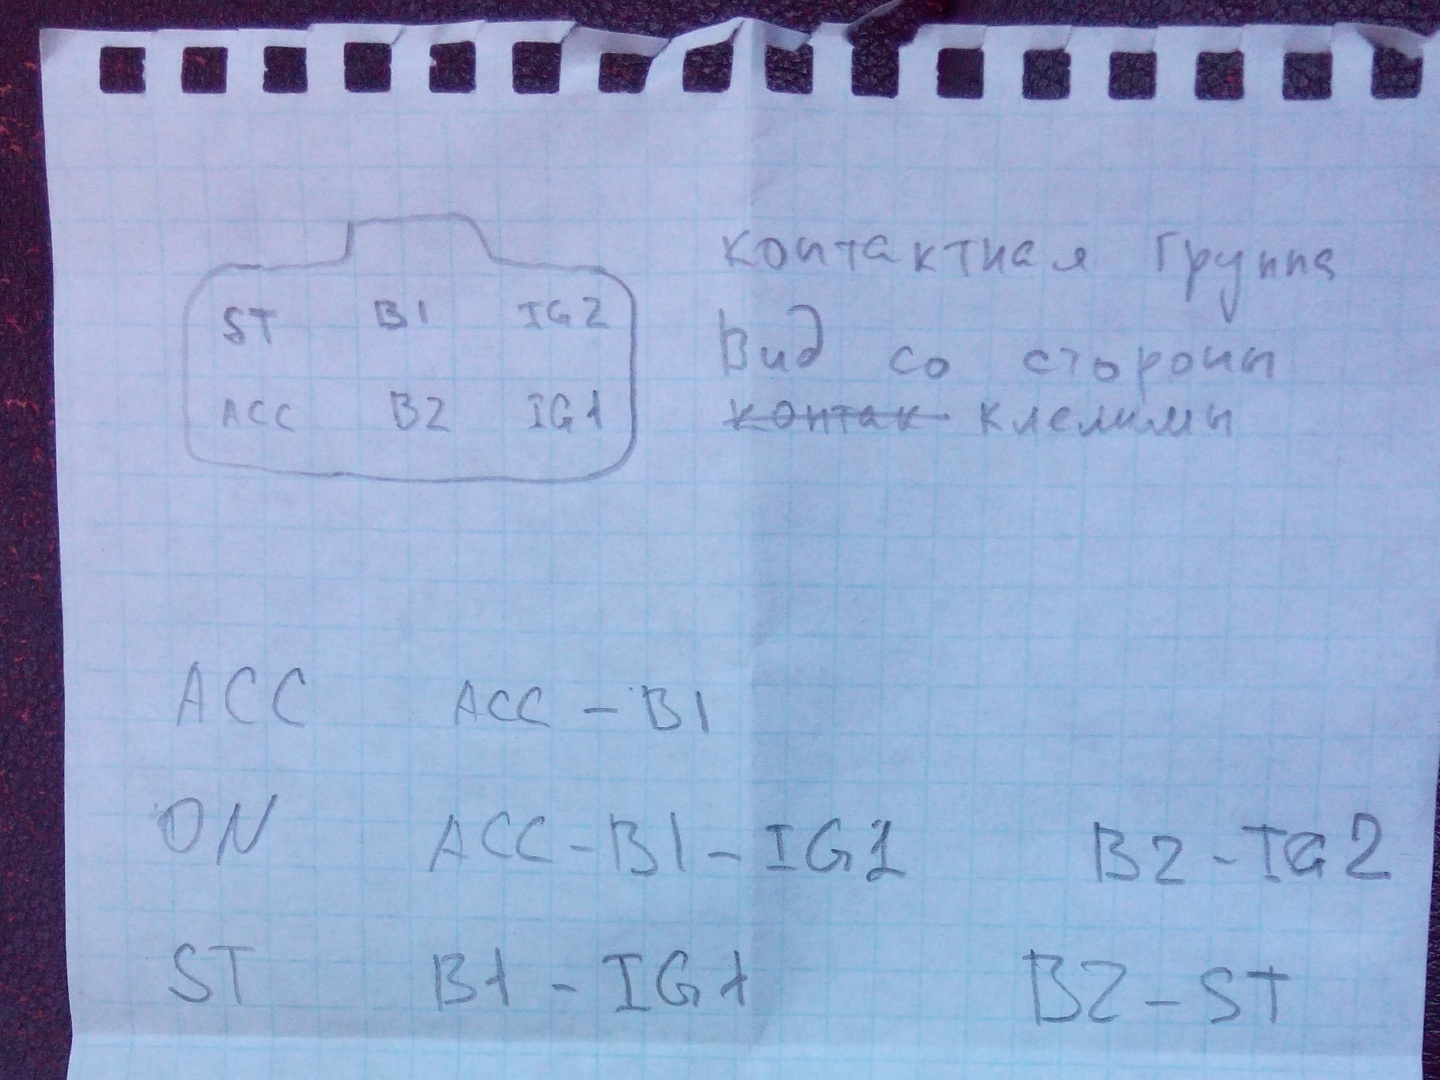 ST B1 IG2
ACC B2 IG1
контактная группа
Вид со стороны
контак клеммы
ACC ACC - B1
ON ACC - B1 - IG1 B2 - IG2
ST B1 - IG1 B2 - ST